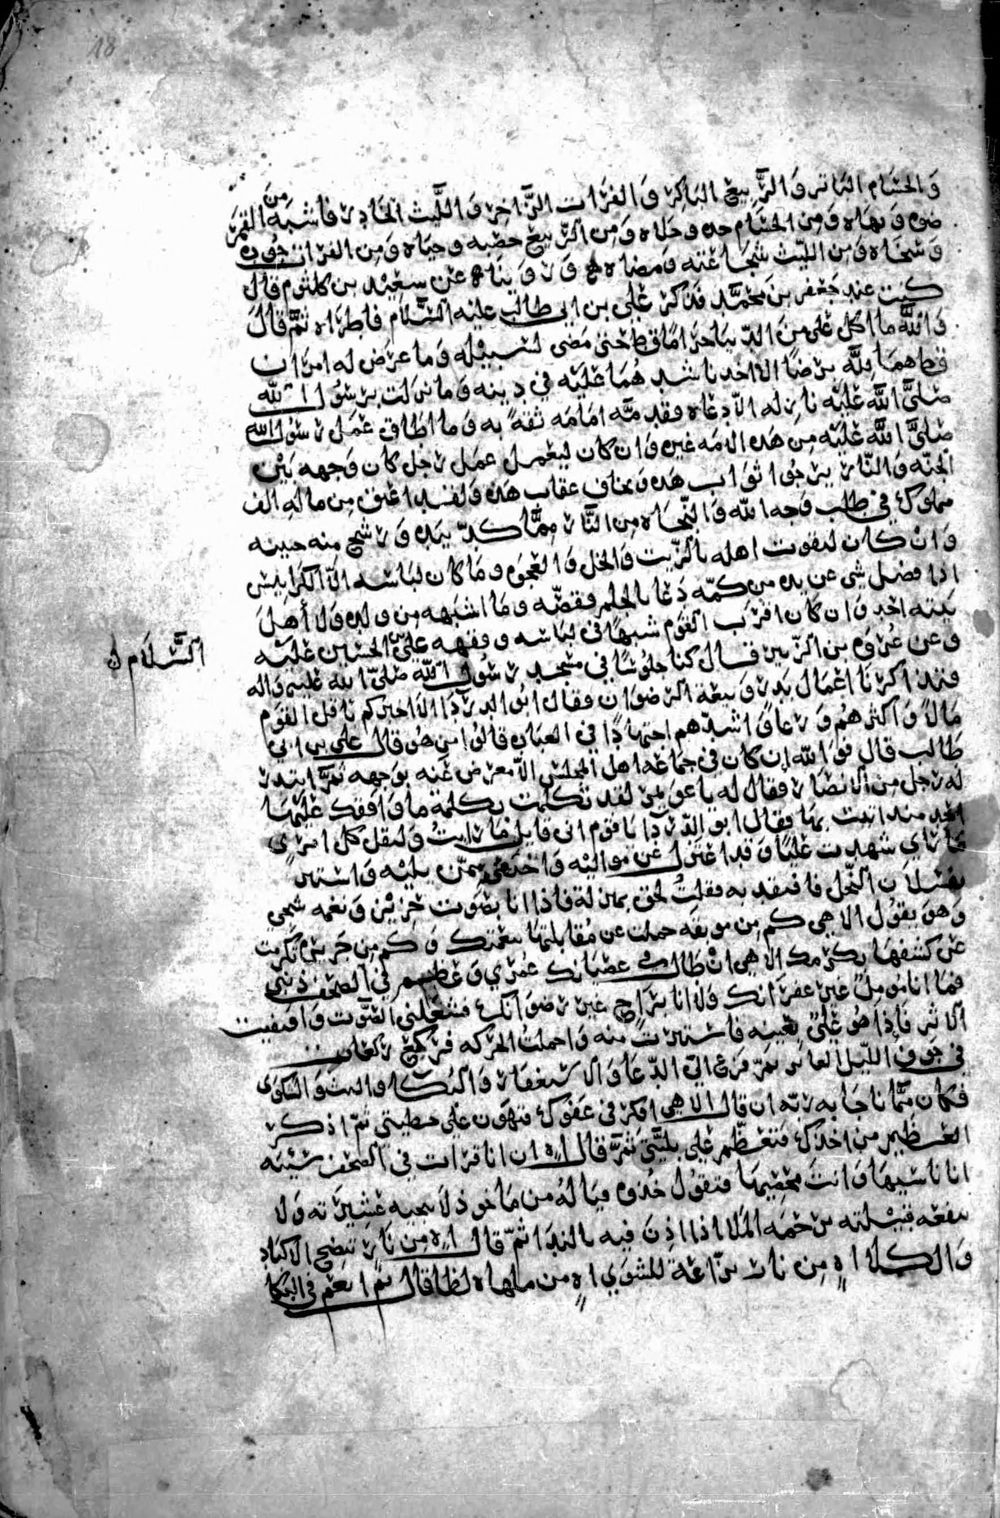 وَالحسَام البَاتر وَالرَّبيع البَاكِر وَالفرَات الزَّاخر وَاللَّيث الخَادر فاشبهَ من القمر
ضوه وَبهَاه وَمن الحسَام حده وجلاه وَمن الرَّبيع خصبه وحيَاه وَمن الفرات جوده
وَسخاه وَمن الليث شجاعته وَمضاه وَرَوينَاه عن سعيد بن كلثوم قال
كنت عند جعفر بن محمَّد فذكر علي بن ابي طالب عليه السَّلام فاطراه ثمَّ قال
وَاللَّه ما اكل علي من الدنيا حرَامًا قط حتى مَضى لسبيله وَما عرض له امرَان
قط هما للَّه رضًا الا اخذ باشدهما عَليه في دينه وَما نزلت برسُول اللّه
صَلَّى اللَّه عَليْه نازله الا دعَاه فقدمه امَامَه ثقةً به وَما اطاق عمَل رسُول اللّه
صَلَّى اللَّه عَليْه من هذه الامه غيره وَان كان ليعمل عمَل رجُل كان وَجهه بَيْن
الجنّه وَالنّار يرجُوا ثوَاب هذه وَيخاف عقاب هذه وَلقد اعتق من مالهِ الف
مملوك في طلب وَجه اللّه وَالنّجاه من النَّار ممَّا كدّ بيَده وَرشح منه جبينه
وَانْ كان ليقوت اهله بالزّيت وَالخل وَالعجوَه وَمَا كان لبَاسه الّا الكرابيس
اذا فضل شي عن يده من كمّه دَعَا بالجلم فقصّه وَما اشبَهه من وَلده وَلا أهل
بَيته احد وَان كان اقرَب القوم شبهًا في لبَاسه وفقهه عليّ الحسَين عليه
السَّلام
وعن عُروَه بن الزّبير قال كنا جلوسًا في مسجد رسُول اللّه صَلّى اللّه عَليْه وَاله
فتذاكرنَا اعْمَال بَدر وَبيعَة الرّضوَان فقال ابُو الدردَا الا اخبركم باقل القوم
مَالاً وَاكثرهُم وَرعًا وَاشدّهم اجتهَادًا في العبَاده قالوُا من هُو قال علي بن ابي
طَالب قال فوَاللّه ان كان في جمَاعَة اهل المجلس الا معرض عنه بوَجهه ثمَّ ابتدر
له رجل من الانصَار فقال له ياعويمر لقد تكلمت بكلمة ما وَافقك عَليهَا
احد منذ اتيت بهَا فقال ابو الدّردَا يا قوم اني قايل مَا رَايتُ وليقل كل امريٍ
مَا رَاي شهدت عَليًّا وَقد اعتزل عَن موَاليْه وَاختفى ممّن يليْه وَاستتر
بفسلاَن النّخل فافتقدته فقلتُ لحق بمنزله فاذا انا بصَوت حزيْن وَنغمه شجي
وَهوَ يقول الاهي كم من موبقه حملت عن مُقابلتهَا بنعمتك وَكم من جريرَة تكرمت
عَن كشفهَا بكرمك الاهي انْ طَال في عصيَانك عُمْري وَعَظم في الصّحف ذنبي
فمَا انا مُومِّل غير غفرَانك وَلا انا برَاجٍ غير رضوَانك فشغلني الصّوت وَاقتفيت
الاثر فَإذا هُو عَلي بعينه فاستترت منه وَاخملتُ الحرَكه فركع ركعَات
في جوف اللّيل الغابر ثمَّ فرَغ الى الدّعَا وَالاستغفَار وَالبُكا وَالبث وَالشكوَى
فكان ممَّا ناجَا به رَبّه ان قال الاهي افكر في عَفوك فتهون عَلي خطيتي ثمّ اذكر
العَظيم من اخذك فتعظم علي بليَّتي ثمَّ قال اه ان انا قرَات في الصّحف سَيئه
انا ناسيهَا وَانت محصيهَا فتقول خذوه فيَا لهُ من مَاخوذ لا تنجيه عشيرَته وَلا
تنفعه قبيلته يرحَمه المَلا اذا اذِن فيه بالندَا ثمّ قال اه من نَار تنضج الاكبَاد
وَالكلا اهٍ من نار نزّاعَة للشوَي اهٍ من ملهباه لظا قال ثمّ انعَم في البكا